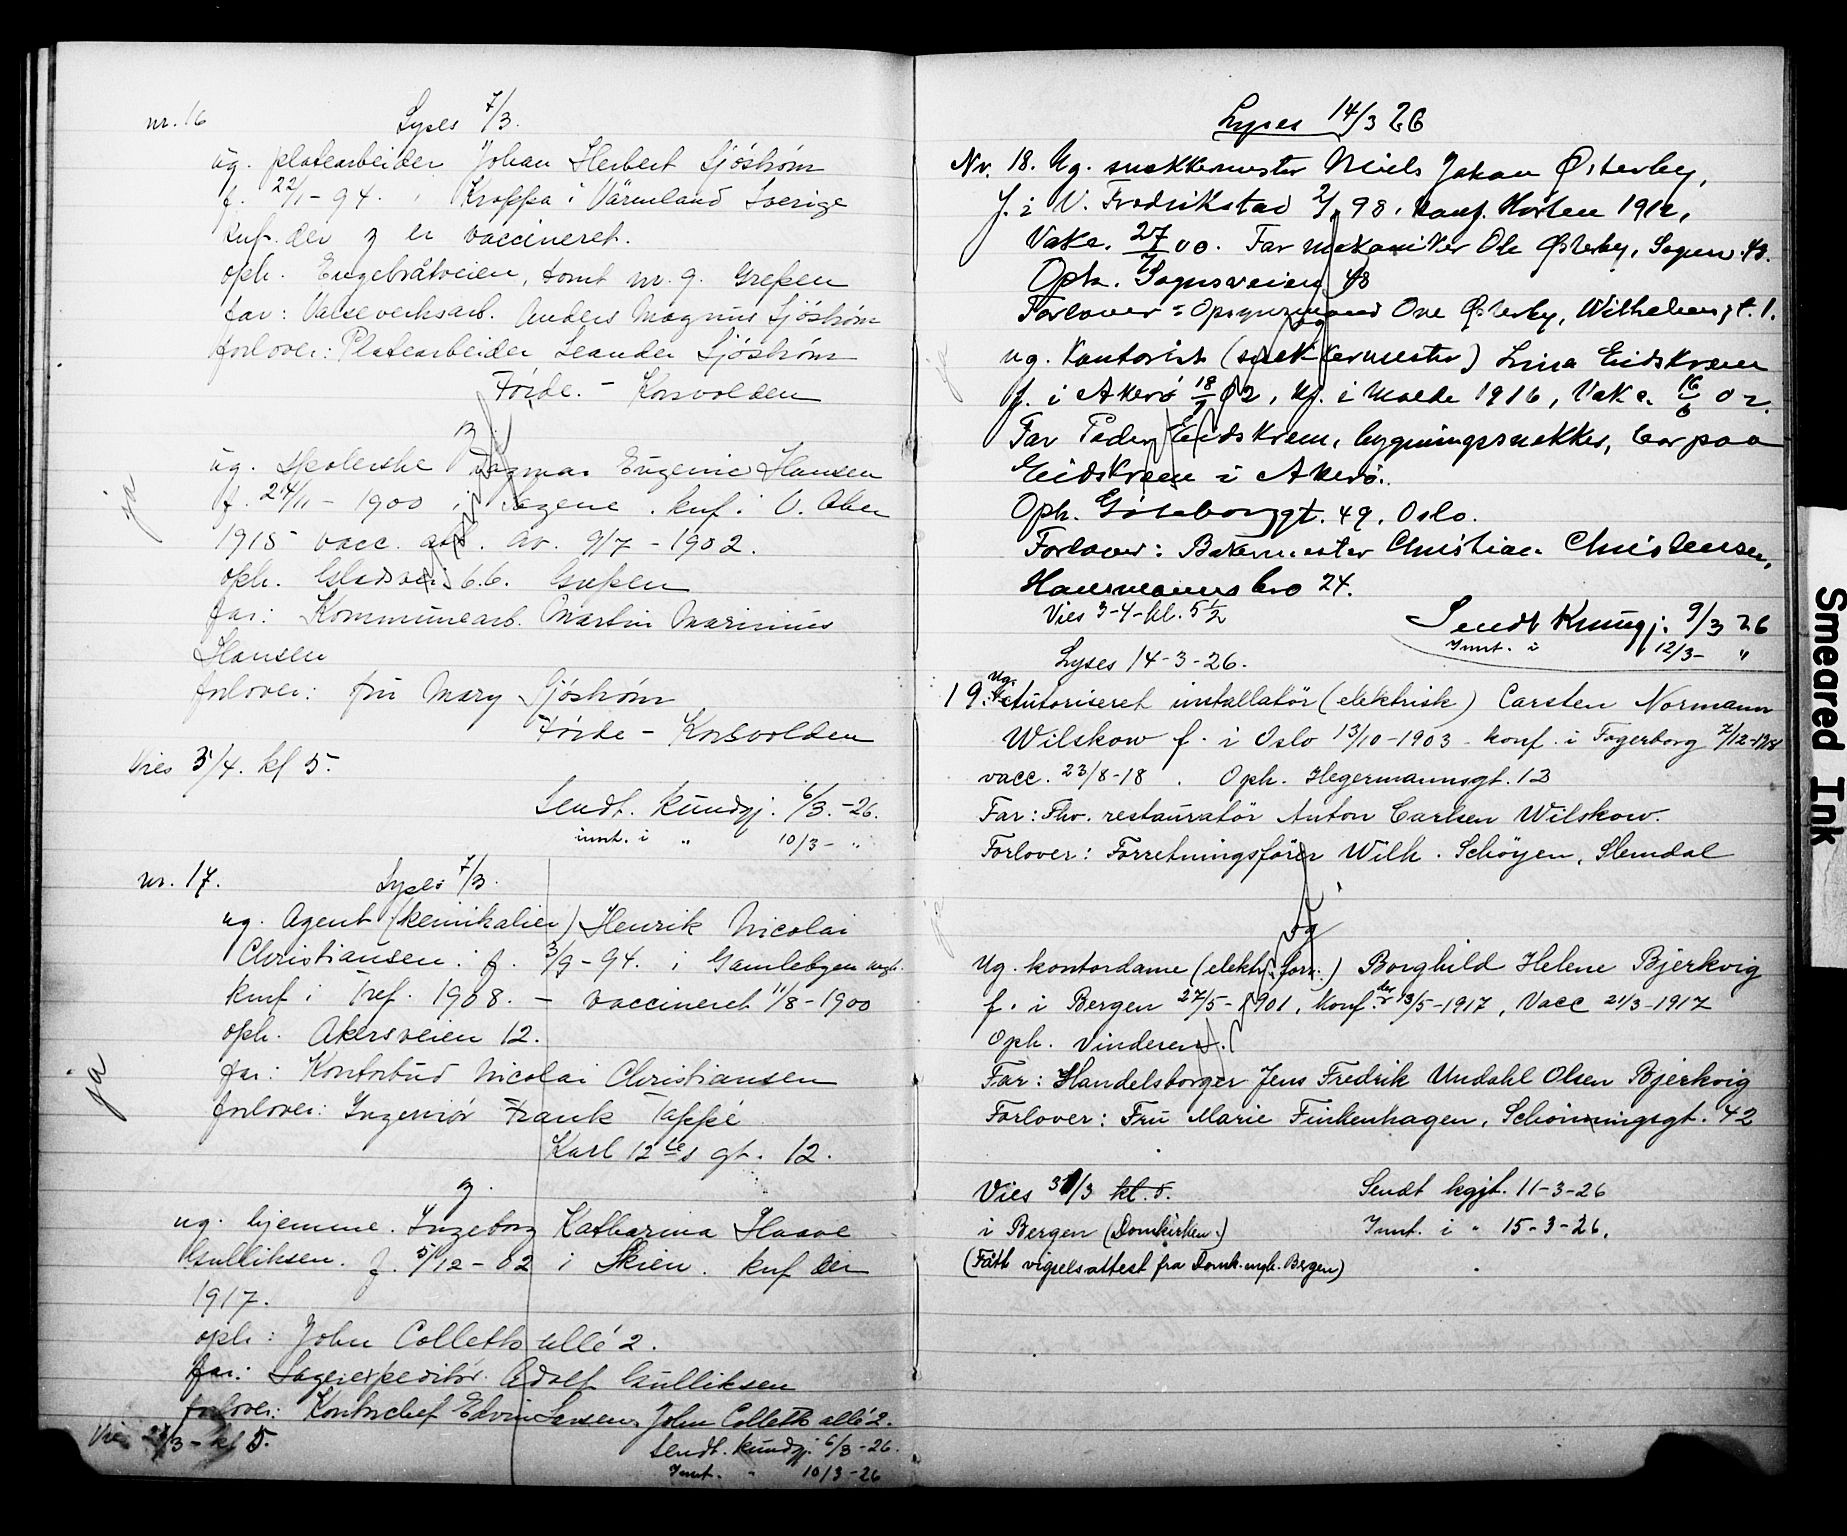 nr. 16 Lyses 7/3.
ug. platearbeider Johan Herbert Sjöström
f. 22/1 - 94. i Kroppa i Värmland Sverige
knf. der og er vaccineret.
oph. Engebråtveien, tomt nr. 9. Grefsen
far: Valseverksarb. Anders Magnus Sjöström
forlover: Platearbeider Leander Sjöström
Förde. - Korsvolden
og
ug. Dagmar Eugenie Hansen
f. 24/11 - 1900 i Sagene. knf. i V. Aker
1915 vacc. att. av. 9/7 - 1902.
oph. Gladsvei 66. Grefsen
far: Kommunearb. Martin Marinius
Hansen
forlover: fru Mary Sjöström
Förde - Korsvolden
Vies 5/4. kl 5.
Sendt. kundgj. 6/3. -26.
innt. i „ 10/3 - „
nr. 17. Lyses 7/3.
ug. Agent (kemikalier) Henrik Nicolai
Christiansen. f. 3/9 - 94. i Gamlebyen mgh.
knf i Tref. 1908. - vaccineret 11/8 - 1900
oph. Akersveien 12.
far: Kontorbud Nicolai Christiansen
forlover: Ingeniör Frank Tappé
Karl 12 tes gt. 12.
og.
ug. hjemme. Ingeborg Katharina Haave
Gulliksen. f. 5/12 - 02 i Skien. knf der
1917.
oph: John Colletts allé 2.
far: Lagerexpeditör Adolf Gulliksen
forlover: Kontorchef Edvin Larsen. John Colletts allé 2.
Vies /3 - kl 5.
Sendt. kundgj. 6/3 - 26.
Innt. „ 10/3 - 26
ja
ja
Lyses 14/3 26
Nr. 18. Ug. snekkermester Niels Johan Østerby,
f. i V. Fredrikstad 98. konf. Horten 1912,
Vakc. 27/7 00. Far mekaniker Ole Østerby, Sognsv. 48.
Oph. Sognsveien 48
Forlover: Opsynsmand Ove Østerby, Wilhelmsgt. 1.
ug. kontorist (snekkermester) Lina Eidskrem
f. i Akerö 18/9 02, kf. i Molde 1916, Vakc. 16/6 02.
Far Peder Eidskrem, bygningssnekker, bor paa
Eidskrem i Akerö.
Oph. Göteborggt. 49, Oslo.
Forlover: Bakermester Christian Christensen,
Hausmannsbro 24.
Vies 3-4-kl. 5 1/2
Sendt Kunngj. 9/3 26
Innt. i 12/3 - „
Lyses 14-3-26.
19. Ug. Autoriseret installatör (elektrisk) Carsten Normann
Wilskow f. i Oslo 13/10-1903 - konf. i Fagerborg 7/12-1918
vacc. 23/8-18. Oph. Hegermannsgt. 13
Far: Fhv. restauratör Anton Carlsen Wilskow.
Forlover: Forretningsförer Wilh. Schöyen, Slemdal
og
Ug. kontordame (elektr. forr.) Borghild Helene Bjerkvig
f. i Bergen 27/5-1901, konf. der 13/5-1917, Vacc 21/3-1917
Oph. Vinderen.
Far: Handelsborger Jens Fredrik Undahl Olsen Bjerkvig
Forlover: Fru Marie Finkenhagen, Schönningsgt. 42
Vies 31/3 kl. 5.
Sendt kgjt. 11-3-26
i Bergen (Domkirken.)
Innt. i „ 15-3-26.
(Fått vigselsattest fra Domk. mgh. Bergen)
Smeared Ink